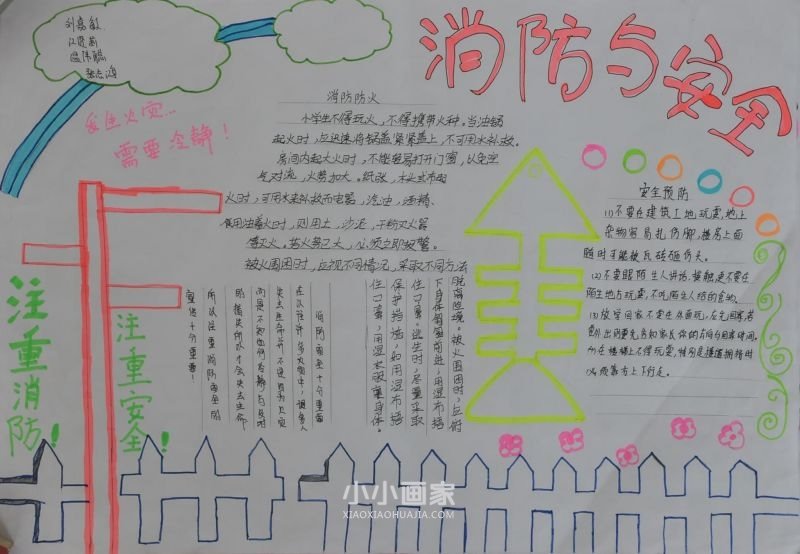 消防与安全
刘嘉敏
发生火灾…
需要冷静！
消防防火
小学生不得玩火，不得携带火种。当油锅
起火时，应迅速将锅盖紧紧盖上，不可用水扑救。
房间内起大火时，不能轻易打开门窗，以免空
气对流，火势加大。纸张、木头或布
火时，可用水来扑救而电器，汽油、酒精、
食用油着火时，则用土、沙泥、干粉灭火器
等灭火。若火势已大，必须立即报警。
被火围困时，应视不同情况，采取不同方法
脱离险境。被火围困时，应俯
下身体匍匐前进，用湿布捂
住口鼻。逃生时，尽量采取
保护措施，如用湿布捂
住口鼻、用湿衣服裹身体。
消防安全十分重要
所以注重消防安全
宣传十分重要！
安全预防
(1)不要在建筑工地玩耍，地上
杂物容易扎伤脚，楼房上面
随时可能被瓦砖砸伤头。
(2)不要跟陌生人讲话、接触更不要在
陌生地方玩耍，不吃陌生人给的食物。
(3)放学回家不要在外面玩，应先回家，若
要外出则要先告知家长你的去向与回家时间。
(4)在楼梯上不得玩耍，特别是楼道拥挤时
必须靠右上下行走。
注重消防！
注重安全！
小小画家
XIAOXIAOHUAJIA.COM